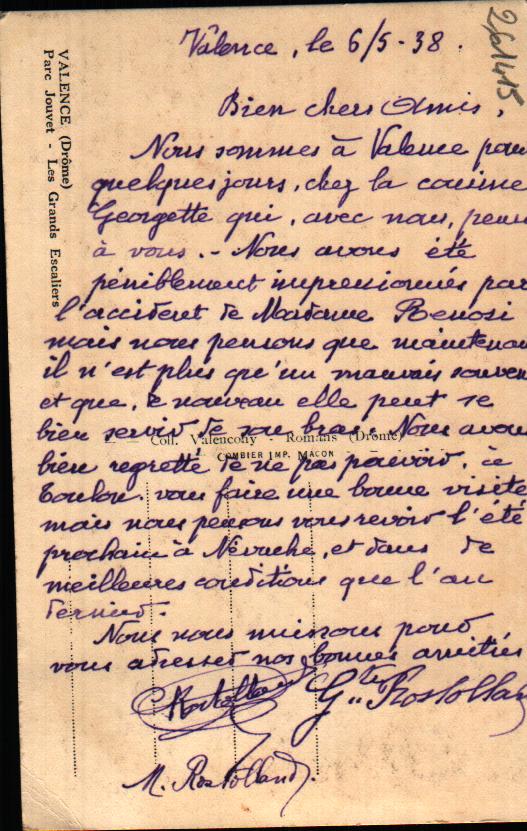 261415
Valence, le 6/5-38.
Bien chers Amis,
Nous sommes à Valence pour
quelques jours, chez la cousine
Georgette qui, avec nous, pense
à vous. - Nous avons été
péniblement impressionnés par
l'accident de Madame Renosi
mais nous pensons que maintenant
il n'est plus qu'un mauvais souven
et que, de nouveau elle peut se
bien servir de son bras. Nous avons
bien regretté de ne pas pouvoir, à
Toulon, vous faire une bonne visite
mais nous pensons vous revoir l'été
prochain à Névache, et dans de
meilleures conditions que l'an
dernier.
Nous nous unissons pour
vous adresser nos bonnes amitiés
Rostolland Gtte Rostolland
M. Rostolland.
VALENCE (Drôme)
Parc Jouvet - Les Grands Escaliers
Coll. Valencony - Romans (Drôme)
COMBIER IMP. MACON